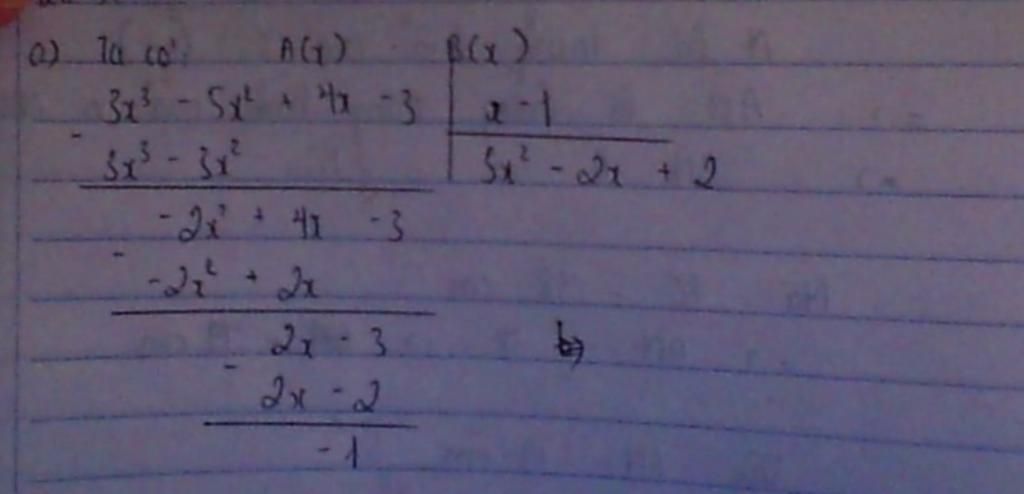 a) Ta có A(x) B(x)
3x³ - 5x² + 4x - 3 | x - 1
- 3x³ - 3x² 3x² - 2x + 2
-2x² + 4x - 3
- -2x² + 2x
2x - 3
- 2x - 2
-1
b)